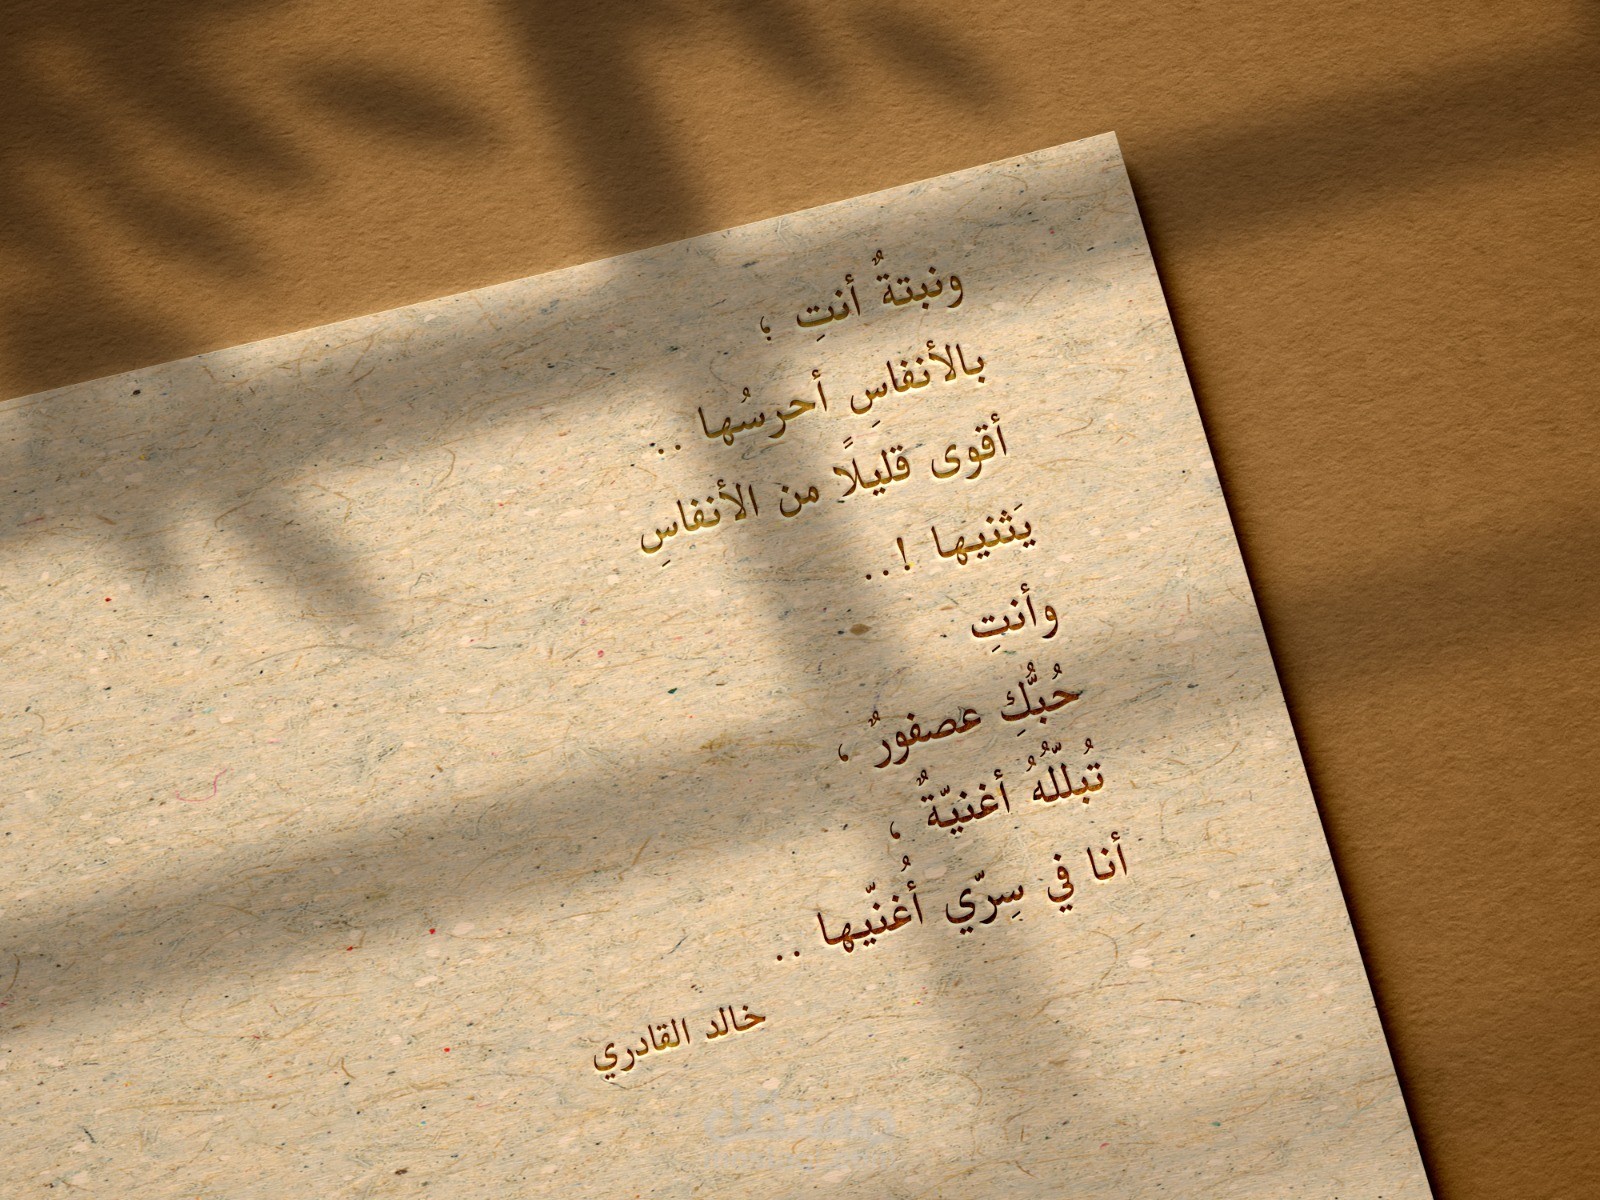 ونبتةٌ أنتِ ؛
بالأنفاسِ أحرسُها ..
أقوى قليلًا من الأنفاسِ
يَثنيها !..
وأنتِ
حُبُّكِ عصفورٌ ،
تُبللّهُ أغنيّةٌ ،
أنا في سِرّي أُغنّيها ..
خالد القادري
مستقل
mostaql.com